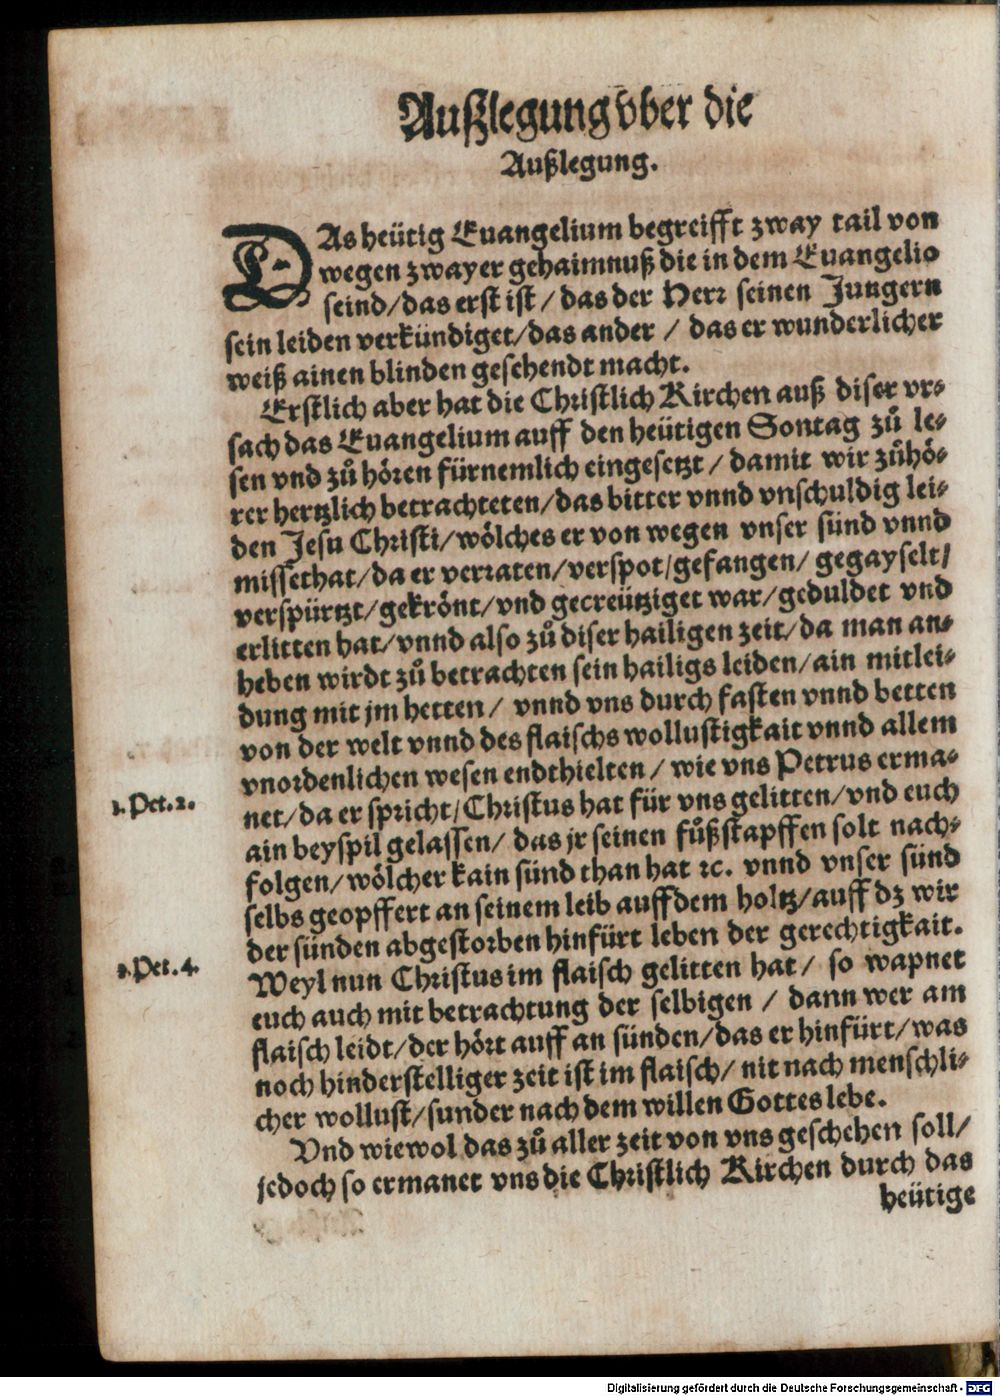 Außlegung vber die
Außlegung.
DAs heütig Euangelium begreifft zway tail von
wegen zwayer gehaimnuß die in dem Euangelio
seind/das erst ist/ das der Herr seinen Jungern
sein leiden verkündiget/das ander / das er wunderlicher
weiß ainen blinden gesehendt macht.
Erstlich aber hat die Christlich Kirchen auß diser vr-
sach das Euangelium auff den heütigen Sontag zů le-
sen vnd zů hören fürnemlich eingesetzt / damit wir zůhö-
rer hertzlich betrachteten/das bitter vnnd vnschuldig lei-
den Jesu Christi/wölches er von wegen vnser sünd vnnd
missethat/da er verraten/verspot/gefangen/ gegayselt/
verspürtzt/gekrönt/vnd gecreütziget war/geduldet vnd
erlitten hat/vnnd also zů diser hailigen zeit/da man an-
heben wirdt zů betrachten sein hailigs leiden/ain mitlei-
dung mit jm hetten/ vnnd vns durch fasten vnnd betten
von der welt vnnd des flaischs wollustigkait vnnd allem
vnordenlichen wesen endthielten/ wie vns Petrus erma-
1. Pet. 2. net/da er spricht/Christus hat für vns gelitten/vnd euch
ain beyspil gelassen/ das jr seinen fůßstapffen solt nach-
folgen/wölcher kain sünd than hat ꝛc. vnnd vnser sünd
selbs geopffert an seinem leib auff dem holtz/auff dz wir
der sünden abgestorben hinfürt leben der gerechtigkait.
1. Pet. 4. Weyl nun Christus im flaisch gelitten hat/ so wapnet
euch auch mit betrachtung der selbigen / dann wer am
flaisch leidt/der hört auff an sünden/das er hinfürt/was
noch hinderstelliger zeit ist im flaisch/ nit nach menschli-
cher wollust/sunder nach dem willen Gottes lebe.
Vnd wiewol das zů aller zeit von vns geschehen soll/
jedoch so ermanet vns die Christlich Kirchen durch das
heütige
Digitalisierung gefördert durch die Deutsche Forschungsgemeinschaft - DFG